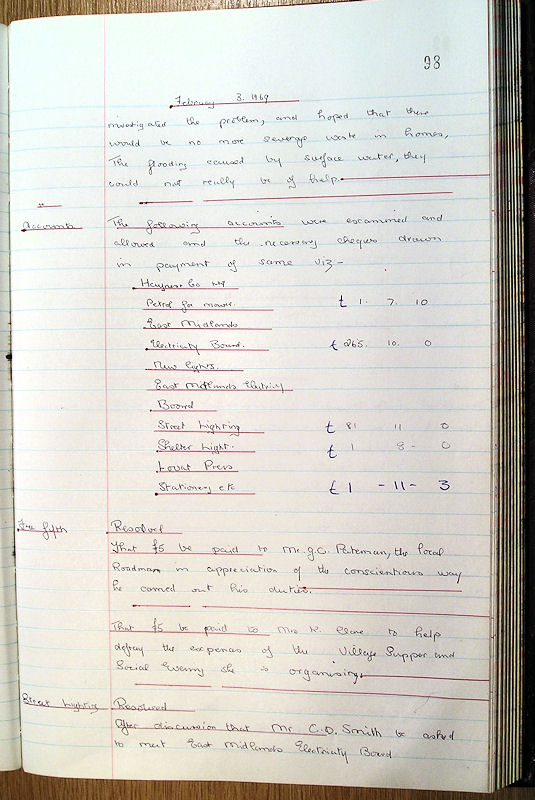 98
February 3. 1969
investigated the problem, and hoped that there
would be no more sewerage waste in homes,
The flooding caused by surface water, they
could not really be of help.
Accounts The following accounts were examined and
allowed and the necessary cheques drawn
in payment of same viz-
Co
Petrol for mower. £ 1. 7. 10
East Midlands
Electricity Board. £ 265. 10. 0
New lights.
East Midlands Electricity
Board
Street Lighting £ 81 11 0
Shelter Light. £ 1 8 - 0
Lovat Press
Stationery etc £ 1 - 11 - 3
Free fifth Resolved
That £5 be paid to Mr. G.C. Pateman, the local
Roadman in appreciation of the conscientious way
he carried out his duties.
That £5 be paid to Mrs K. Clare to help
defray the expenses of the Village Supper and
Social Evening she is organising
Street Lighting Resolved
After discussion that Mr C.D. Smith be asked
to meet East Midlands Electricity Board